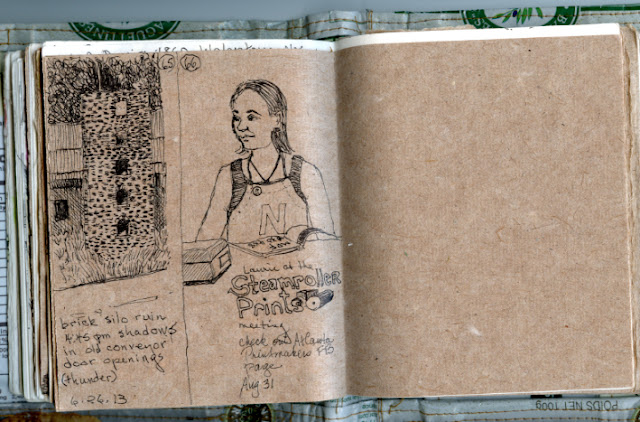 65
66
brick silo ruin
4:45 pm shadows
in old conveyor
door openings
(thunder)
6.26.13
N
Laurie at the
Steamroller
Prints
meeting
check out Atlanta
Printmakers FB
page
Aug 31
POIDS NET 100g